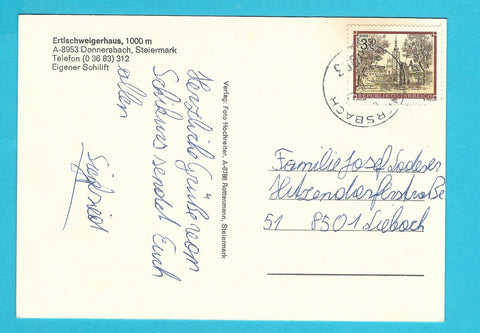 Ertlschweigerhaus, 1000 m
A-8953 Donnersbach, Steiermark
Telefon (0 36 83) 312
Eigener Schilift
Herzliche Grüße vom
Schikurs sendet Euch
allen
Siegfried
Verlag: Foto Hochreiter, A-8786 Rottenmann, Steiermark
3.50
REPUBLIK ÖSTERREICH
ERSBACH
Familie Josef
Hitzendorferstraße
51 8501 Lieboch